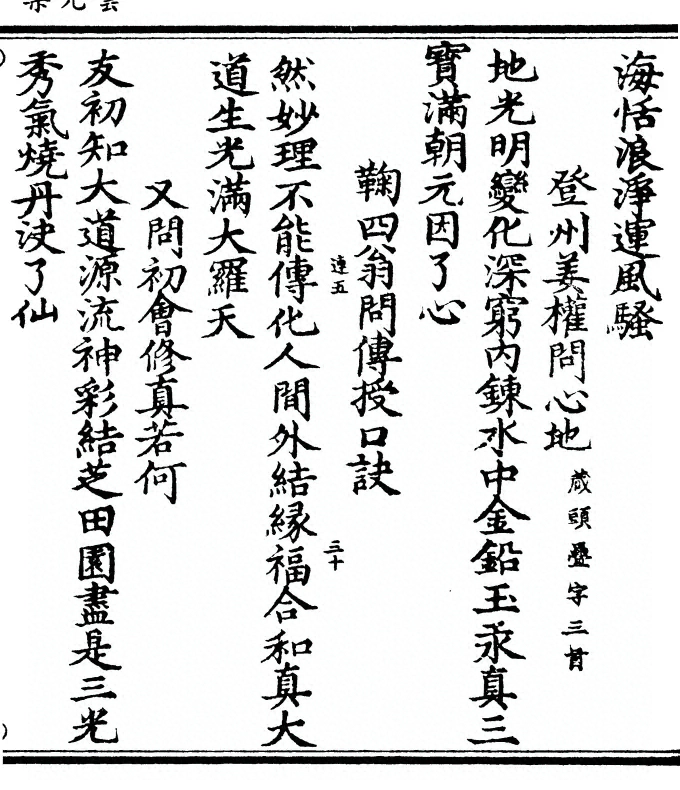 海恬浪淨運風騷
登州姜權問心地 蔵頭疊字三首
地光明變化深窮內鍊水中金鉛玉汞真三
寶滿朝元因了心
鞠四翁問傳授口訣
然妙理不能傳化人間外結緣福合和真大
連五
三十
道生光滿大羅天
又問初會修真若何
友初知大道源流神彩結芝田園盡是三光
秀氣燒丹决了仙